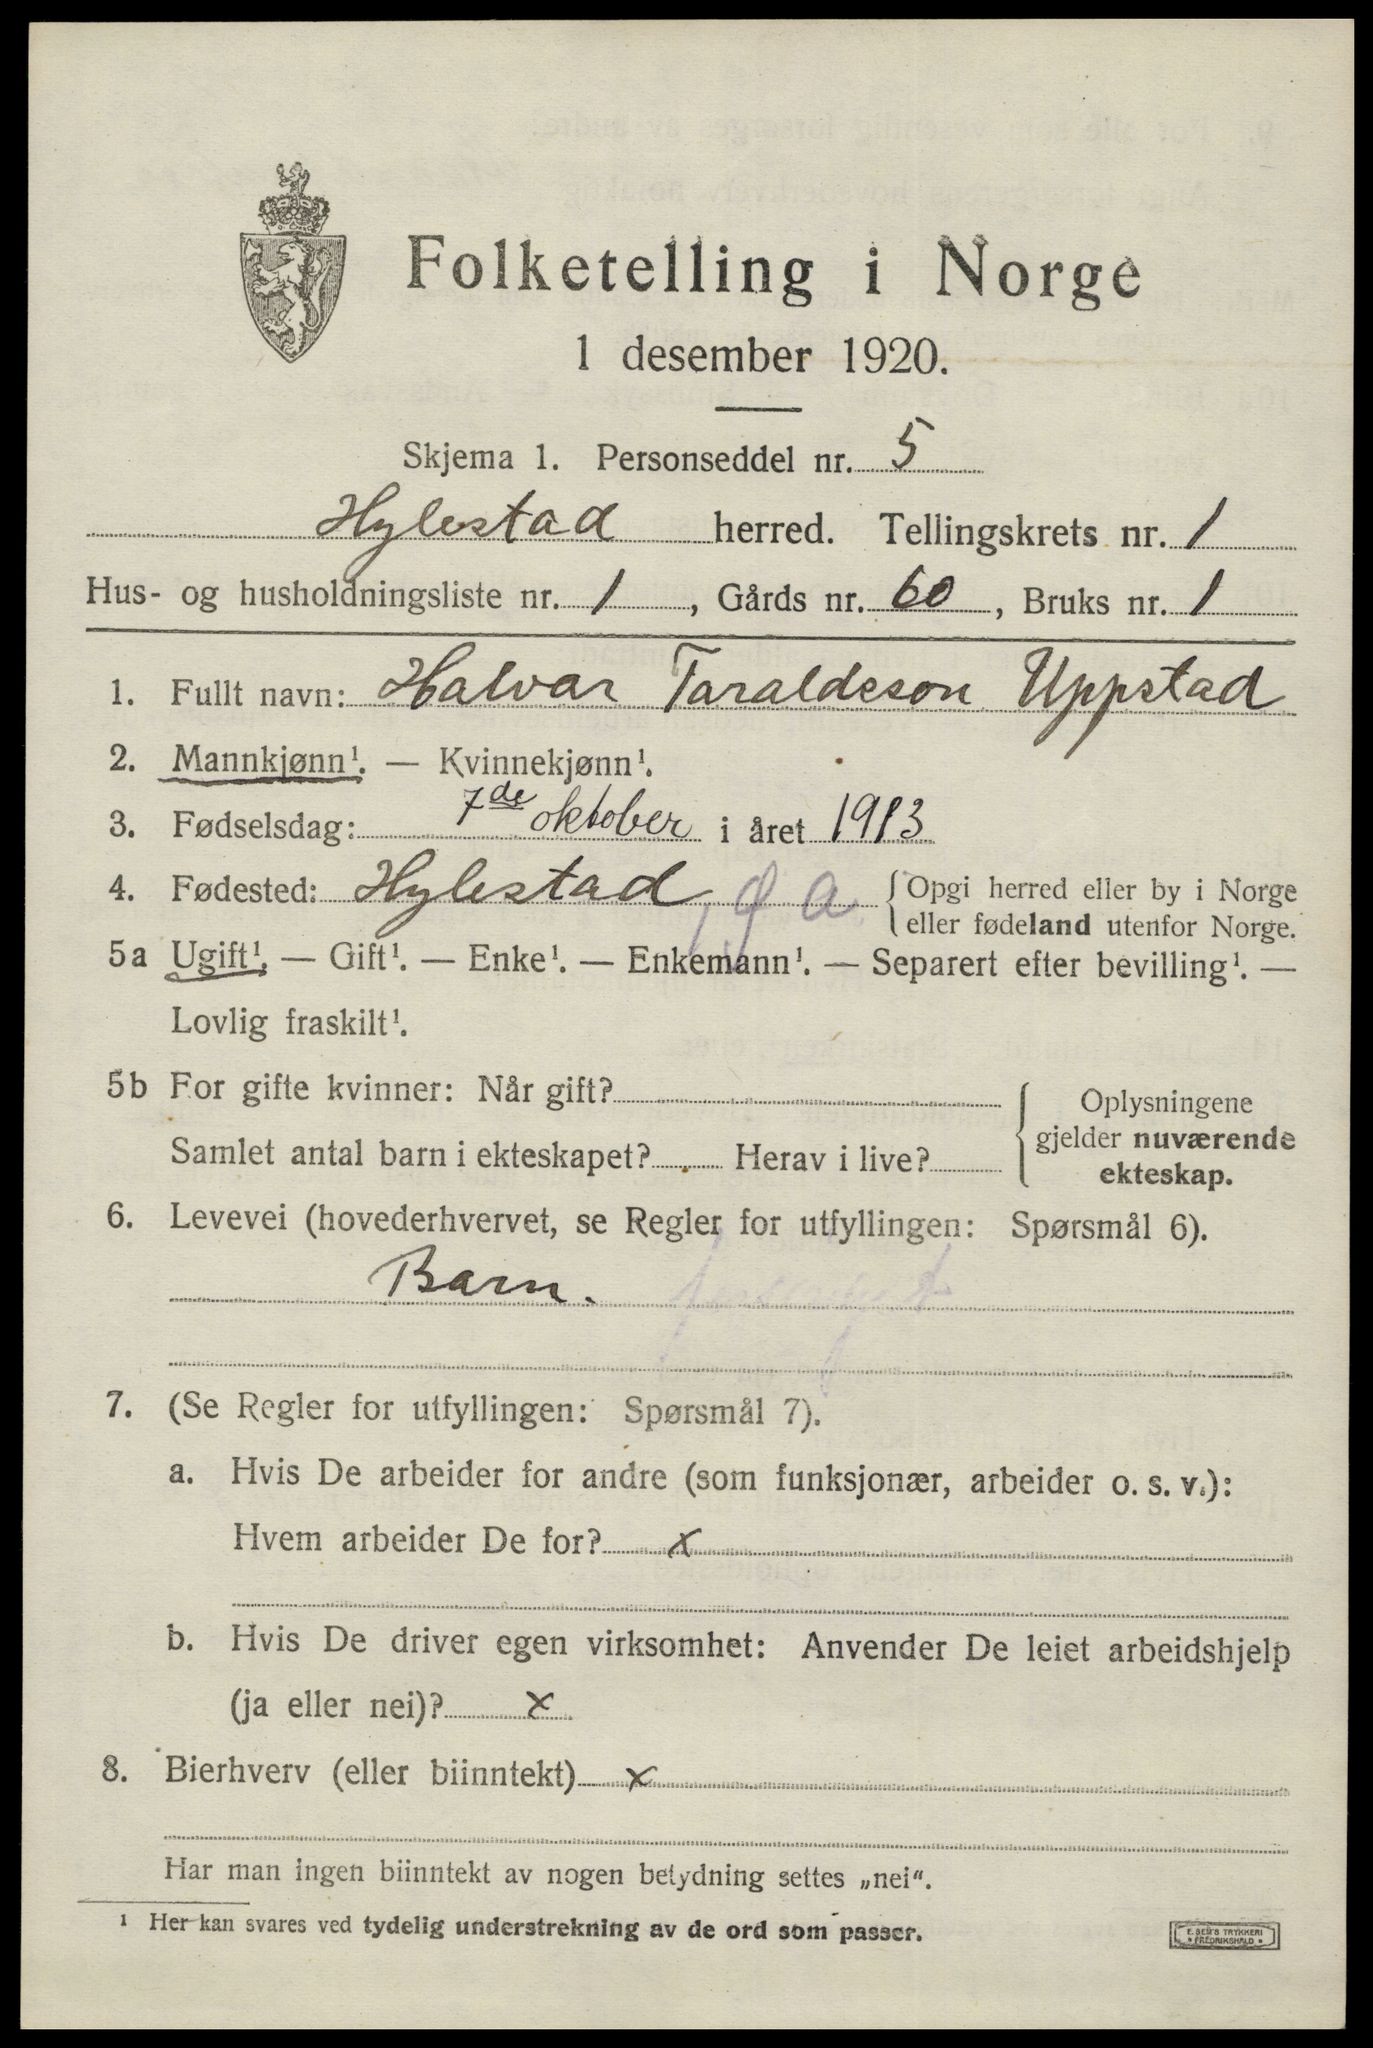 Folketelling i Norge
1 desember 1920.
Skjema 1. Personseddel nr. 5
Hylestad herred. Tellingskrets nr. 1
Hus- og husholdningsliste nr. 1, Gårds nr. 60, Bruks nr. 1
1. Fullt navn: Halvar Taraldeson Uppstad
2. Mannkjønn¹. — Kvinnekjønn¹.
3. Fødselsdag: 7de oktober i året 1913
4. Fødested: Hylestad {Opgi herred eller by i Norge
eller fødeland utenfor Norge.
5a Ugift¹. — Gift¹. — Enke¹. — Enkemann¹. — Separert efter bevilling¹. —
Lovlig fraskilt¹.
5b For gifte kvinner: Når gift?
Samlet antal barn i ekteskapet? Herav i live?
Oplysningene
gjelder nuværende
ekteskap.
6. Levevei (hovederhvervet, se Regler for utfyllingen: Spørsmål 6).
Barn. forsørget
7. (Se Regler for utfyllingen: Spørsmål 7).
a. Hvis De arbeider for andre (som funksjonær, arbeider o. s. v.):
Hvem arbeider De for? x
b. Hvis De driver egen virksomhet: Anvender De leiet arbeidshjelp
(ja eller nei)? x
8. Bierhverv (eller biinntekt) x
Har man ingen biinntekt av nogen betydning settes „nei“.
¹ Her kan svares ved tydelig understrekning av de ord som passer.
E. SEM'S TRYKKERI
FREDRIKSHALD